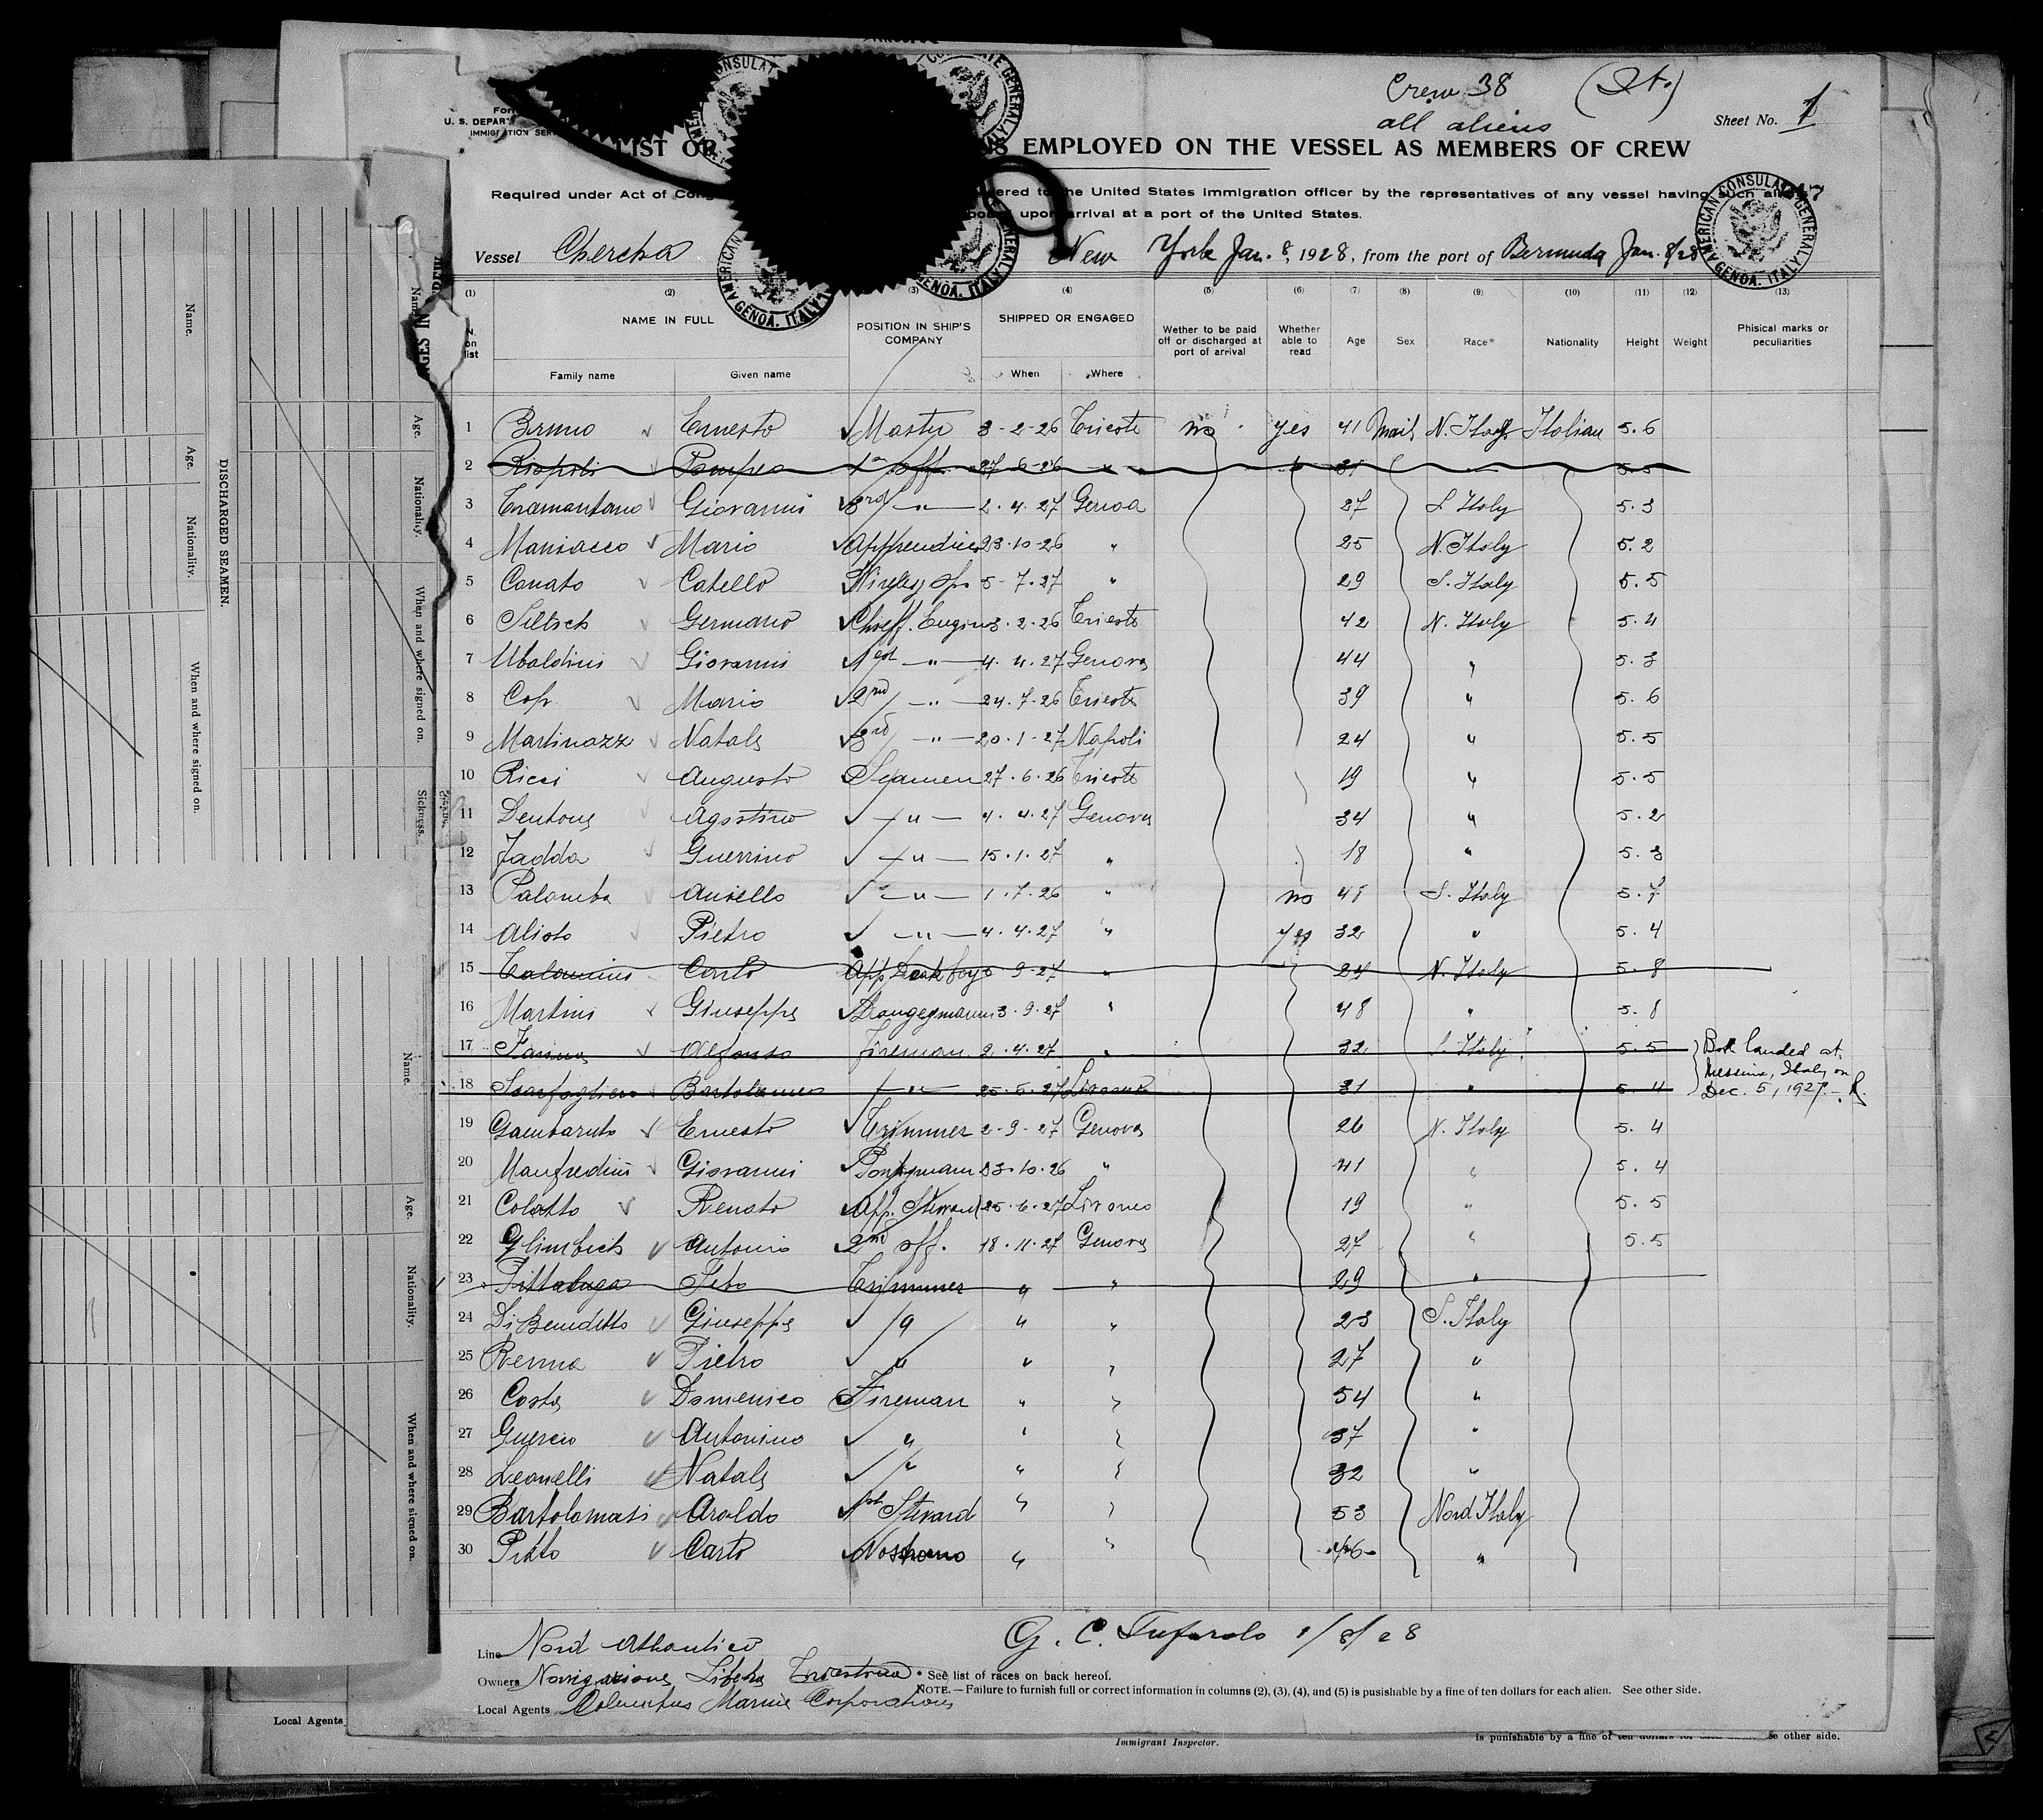 Crew 38 (It.)
all aliens
Sheet No. 1
U. S. DEPAR
IMMIGRATION SER
LIST OR
EMPLOYED ON THE VESSEL AS MEMBERS OF CREW
Required under Act of Cong
ered to the United States immigration officer by the representatives of any vessel having such aliens
upon arrival at a port of the United States.
Vessel Chercha New York Jan. 8, 1928, from the port of Bermuda Jan. 8/28
AMERICAN CONSULATE GENERAL GENOA. ITALY
(1) (2) (3) (4) (5) (6) (7) (8) (9) (10) (11) (12) (13)
on list
NAME IN FULL
Family name
Given name
POSITION IN SHIP'S COMPANY
SHIPPED OR ENGAGED
When
Where
Wether to be paid off or discharged at port of arrival
Whether able to read
Age
Sex
Race*
Nationality
Height
Weight
Phisical marks or peculiarities
1 Bruno Ernesto Master 3-2-26 Trieste no yes 41 N. Italy Italian 5.6
2 Pompeo 1st off. 27-6-26 " 31 5.5
3 Tramontano Giovanni 3rd " 2.4.27 Genoa 27 S Italy 5.3
4 Maniacco Mario Apprendice 23.10.26 " 25 N. Italy 5.2
5 Conato Catello Wireless Op. 5-7.27 " 29 S. Italy 5.5
6 Siltsch Germano Chieff. Engin 3.2.26 Trieste 42 N. Italy 5.4
7 Ubaldini Giovanni 1st " 4.4.27 Genova 44 " 5.3
8 Cop Mario 2nd " 24.7.26 Trieste 39 " 5.6
9 Martinazz Natale 3rd " 20.1.27 Napoli 24 " 5.5
10 Ricci Augusto Seamen 27.6.26 Trieste 19 " 5.5
11 Dentone Agostino " 4.4.27 Genova 34 " 5.2
12 Fadda Guerrino " 15.1.27 " 18 " 5.3
13 Palomba Aniello " 1.7.26 " no 41 S. Italy 5.7
14 Alioto Pietro " 4.4.27 " yes 32 " 5.4
15 Carlo App. Deck boy 9-27 " 24 N. Italy 5.8
16 Martini Giuseppe 3.9.27 " 48 " 5.8
17 Farina Alfonso Fireman 2.4.27 " 32 S. Italy 5.5 Both landed at
Messina, Italy on
18 Bartolomeo " 25.6.27 Livorno 31 " 5.4 Dec. 5, 1927. R.
19 Gambaruto Ernesto Trimmer 2-9-27 Genova 26 N. Italy 5.4
20 Manfredini Giovanni 23.10.26 " 41 " 5.4
21 Colotto Renato App. Steward 25.6.27 Livorno 19 " 5.5
22 Glimbich Antonio 2nd off. 18.11.27 Genova 27 " 5.5
23 Pittaluga Trimmer " " 29 "
24 Di Benedetto Giuseppe " " " 23 S. Italy
25 Renna Pietro " " " 27 "
26 Costa Domenico Fireman " " 54 "
27 Guercio Antonino " " " 37 "
28 Leonelli Natale " " " 32 "
29 Bartolomasi Aroldo 1st Steward " " 53 Nord Italy
30 Pitto Carlo Nostromo " " 46 "
Line Nord Athantico G. C. Tufarolo 1/8/28
Owners Navigazione Libera Triestina * See list of races on back hereof.
NOTE. — Failure to furnish full or correct information in columns (2), (3), (4), and (5) is pusishable by a fine of ten dollars for each alien. See other side.
Local Agents Columbus Marine Corporation
Local Agents
Immigrant Inspector.
is punishable by a fine of
other side.
DISCHARGED SEAMEN.
Name.
Age.
Nationality.
When and where signed on.
Name.
Age.
Nationality.
When and where signed on.
Sickness.
Name.
Age.
Nationality.
When and where signed on.